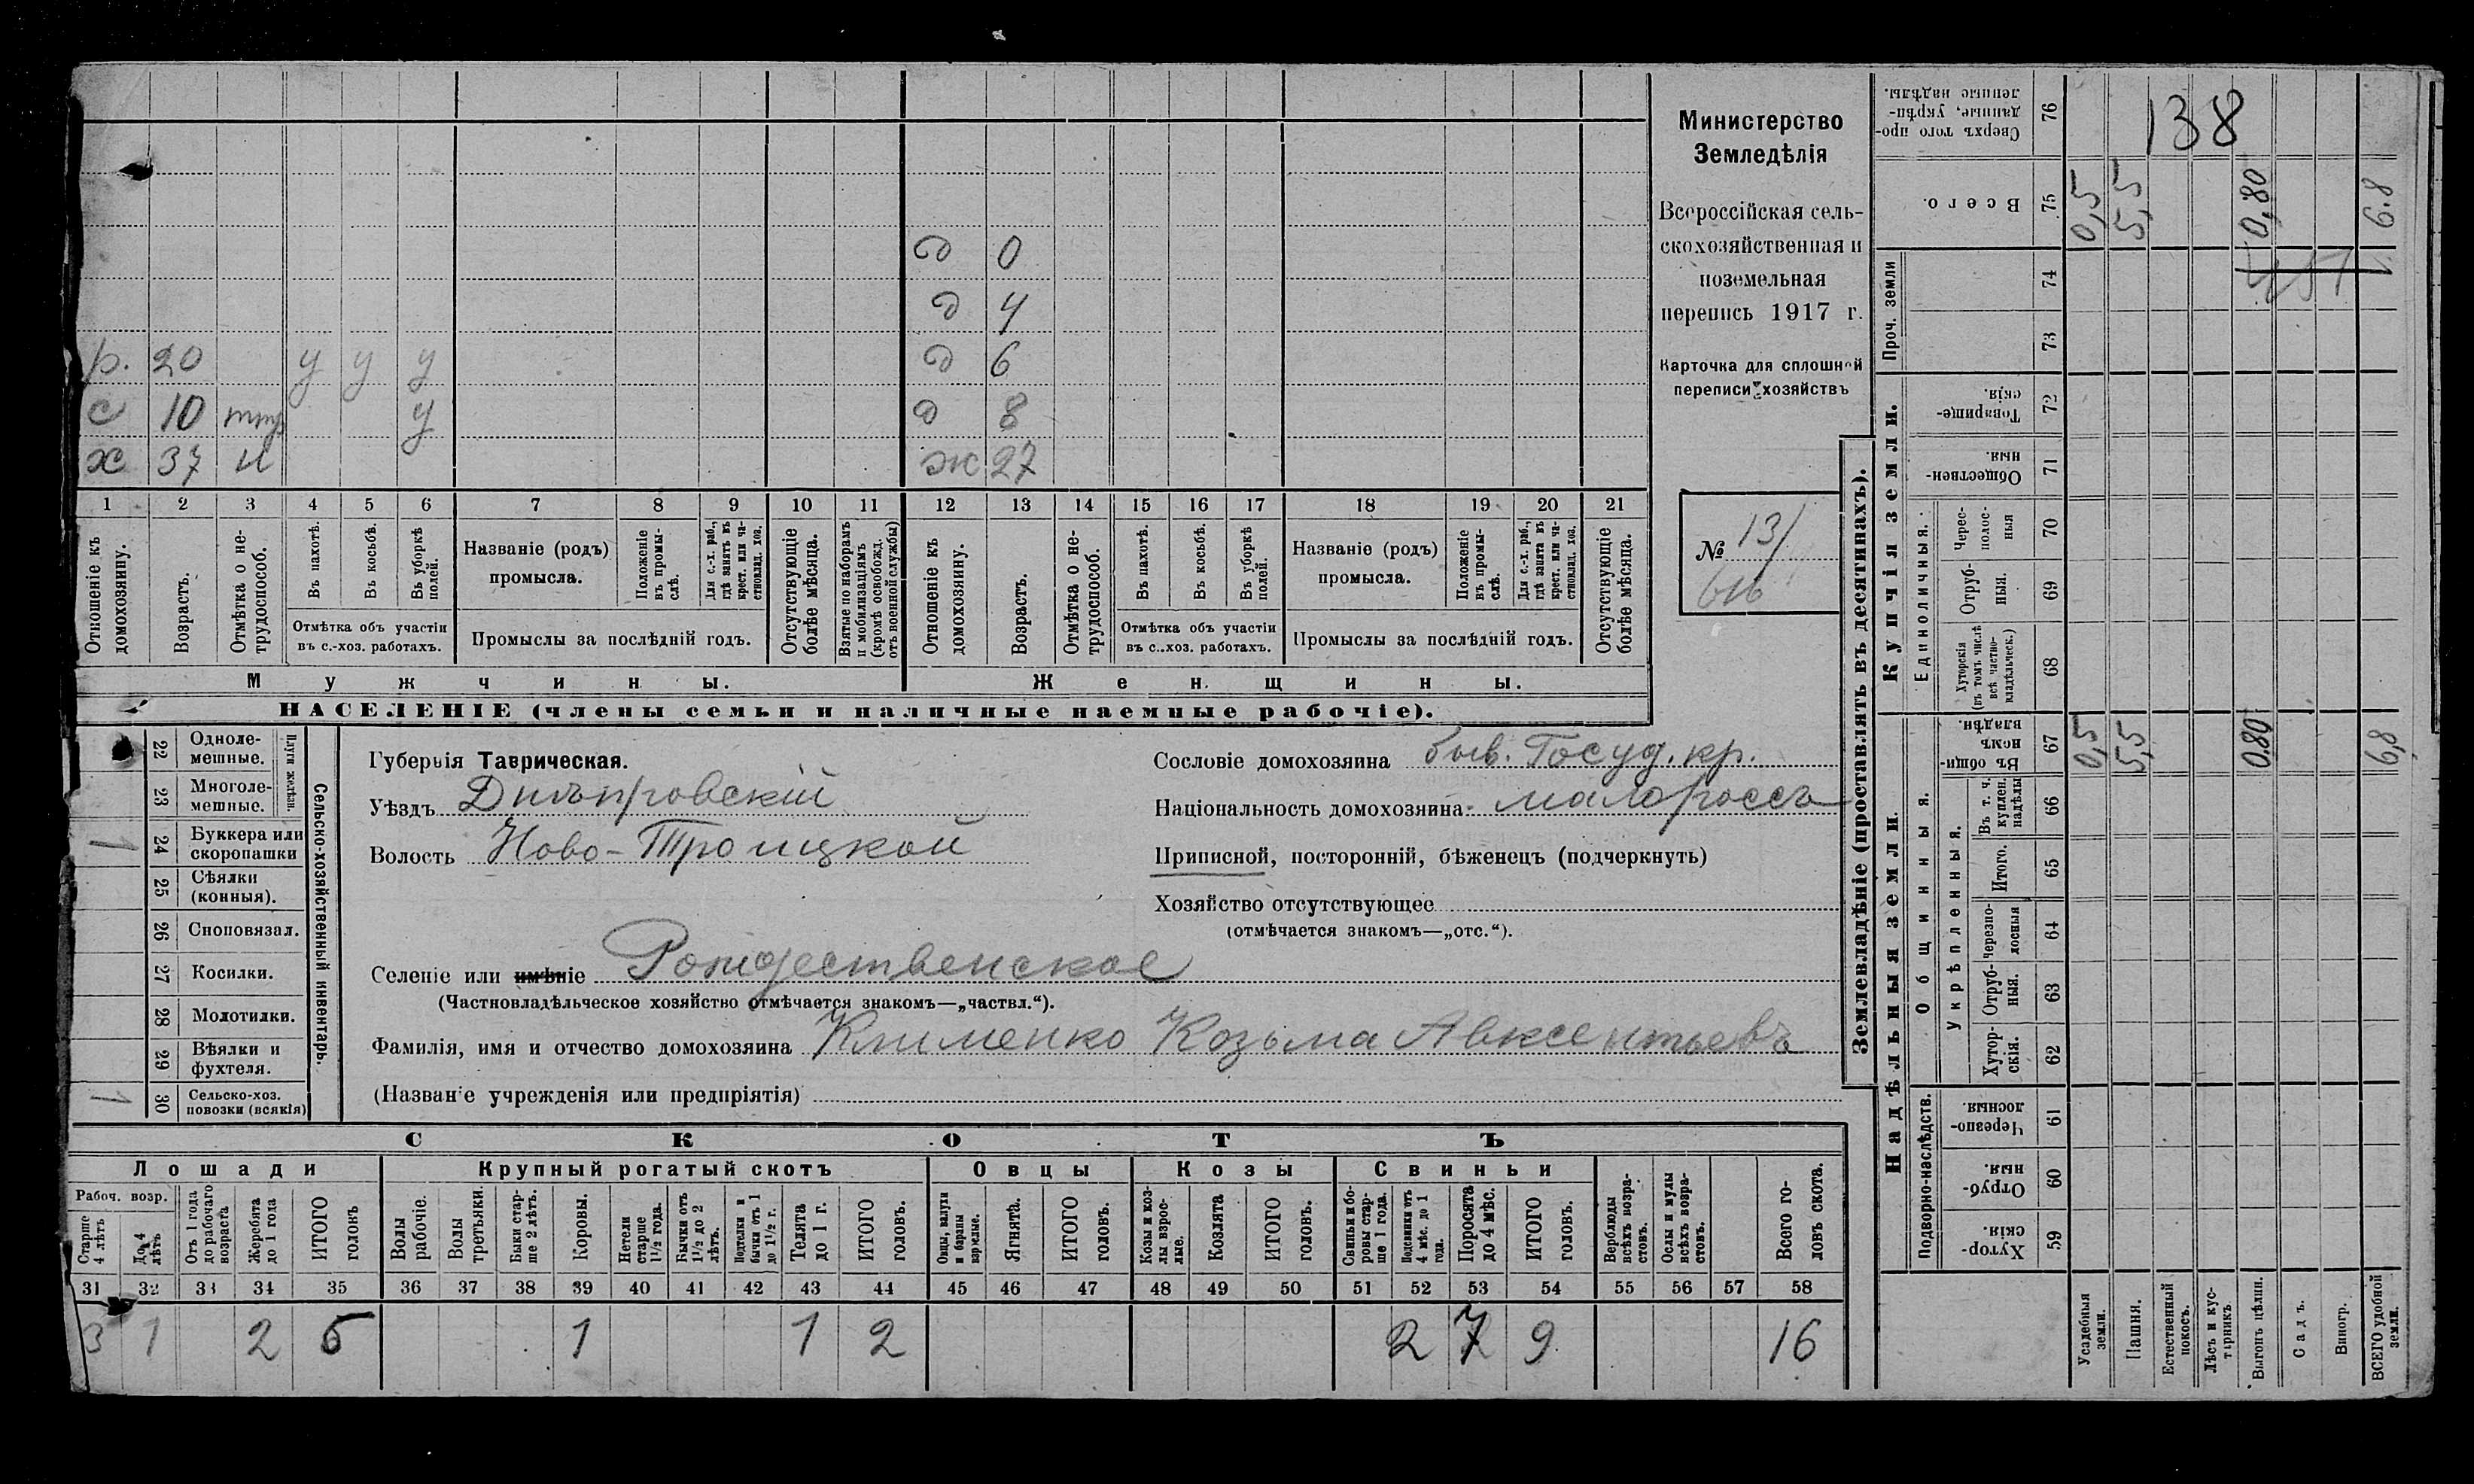 д 0
д 4
р. 20 у у у д 6
с 10 у д 8
х 37 н ж 27
1 2 3 4 5 6 7 8 9 10 11 12 13 14 15 16 17 18 19 20 21
Отношеніе къ домохозяину.
Возрастъ.
Отмѣтка о не-
трудоспособ.
Въ пахотѣ.
Въ косьбѣ.
Въ уборкѣ полей.
Отмѣтка объ участіи
въ с.-хоз. работахъ.
Названіе (родъ)
промысла.
Положеніе
въ промы-
слѣ.
Для с.-х. раб.,
гдѣ занятъ въ
крест. или ча-
стновлад. хоз.
Промыслы за послѣдній годъ.
Отсутствующіе
болѣе мѣсяца.
Взятые по наборамъ
и мобилизаціямъ
(кромѣ освобожд.
отъ военной службы)
Отношеніе къ
домохозяину.
Возрастъ.
Отмѣтка о не-
трудоспособ.
Въ пахотѣ.
Въ косьбѣ.
Въ уборкѣ
полей.
Отмѣтка объ участіи
въ с..хоз. работахъ.
Названіе (родъ)
промысла.
Положеніе
въ промы-
слѣ.
Для с.-х. раб.,
гдѣ занята въ
крест. или ча-
стновлад. хоз.
Промыслы за послѣдній годъ.
Отсутствующіе
болѣе мѣсяца.
Мужчины.
Женщины.
НАСЕЛЕНІЕ (члены семьи и наличные наемные рабочіе).
Министерство
Земледѣлія
Всероссійская сель-
скохозяйственная и
поземельная
перепись 1917 г.
Карточка для сплошной
переписи хозяйствъ
№ 131
22 Одноле-
мешные.
23 Многоле-
мешные.
Плуги желѣзн.
1 24 Буккера или
скоропашки
25 Сѣялки
(конныя).
26 Сноповязал.
27 Косилки.
28 Молотилки.
29 Вѣялки и
фухтеля.
1 30 Сельско-хоз.
повозки (всякія)
Сельско-хозяйственный инвентарь.
Губернія Таврическая.
Уѣздъ Днѣпровскій
Волость Ново-Троицкой
Селеніе или имѣніе Рождественское
(Частновладѣльческое хозяйство отмѣчается знакомъ—„частвл.“).
Фамилія, имя и отчество домохозяина Клименко Козьма Авксентьевъ
(Названіе учрежденія или предпріятія)
Сословіе домохозяина быв. Госуд. кр.
Національность домохозяина малороссъ
Приписной, посторонній, бѣженецъ (подчеркнуть)
Хозяйство отсутствующее
(отмѣчается знакомъ—„отс.“).
СКОТЪ
Лошади
Крупный рогатый скотъ
Овцы
Козы
Свиньи
Рабоч. возр.
Старше
4 лѣтъ
До 4
лѣтъ
Отъ 1 года
до рабочаго
возраста
Жеребята
до 1 года
ИТОГО
головъ
Волы
рабочіе.
Волы
третьяки.
Быки стар-
ше 2 лѣтъ.
Коровы.
Нетели
старше
1½ года.
Бычки отъ
1½ до 2
лѣтъ.
Подтелки и
бычки отъ 1
до 1½ г.
Телята
до 1 г.
ИТОГО
головъ.
Овцы, валухи
и бараны
взрослые.
Ягнята.
ИТОГО
головъ.
Козы и коз-
лы взрос-
лые.
Козлята
ИТОГО
головъ.
Свиньи и бо-
ровы стар-
ше 1 года.
Подсвинки отъ
4 мѣс. до 1
года.
Поросята
до 4 мѣс.
ИТОГО
головъ.
Верблюды
всѣхъ возра-
стовъ.
Ослы и мулы
всѣхъ возра-
стовъ.
Всего го-
ловъ скота.
31 32 33 34 35 36 37 38 39 40 41 42 43 44 45 46 47 48 49 50 51 52 53 54 55 56 57 58
3 1 2 6 1 1 2 2 7 9 16
Землевладѣніе (проставлять въ десятинахъ).
Надѣльныя земли.
Купчія земли.
Проч. земли
Подворно-наслѣдств.
Общинныя.
Укрѣпленныя.
Единоличныя.
Хутор-
скія. 59
Отруб-
ныя. 60
Черезпо-
лосныя. 61
Хутор-
скія. 62
Отруб-
ныя. 63
Черезпо-
лосныя 64
Итого. 65
Въ т. ч.
куплен.
надѣлы 66
Въ общи-
номъ
владѣн. 67
Хуторскія
(въ томъ числѣ
всѣ частно-
владѣльческ.) 68
Отруб-
ныя. 69
Черес-
полос-
ныя 70
Обществен-
ныя. 71
Товарище-
скія. 72
73
74
Всего. 75
Сверхъ того про-
данные, укрѣп-
ленные надѣлы. 76
138
Усадебныя
земли. 0,5 0,5
Пашня. 5,5 5,5
Естественный
покосъ.
Лѣсъ и кус-
тарникъ
Выгонъ цѣлин. 0,80 0,80
Садъ.
Виногр.
ВСЕГО удобной
земли. 6,8 6.8